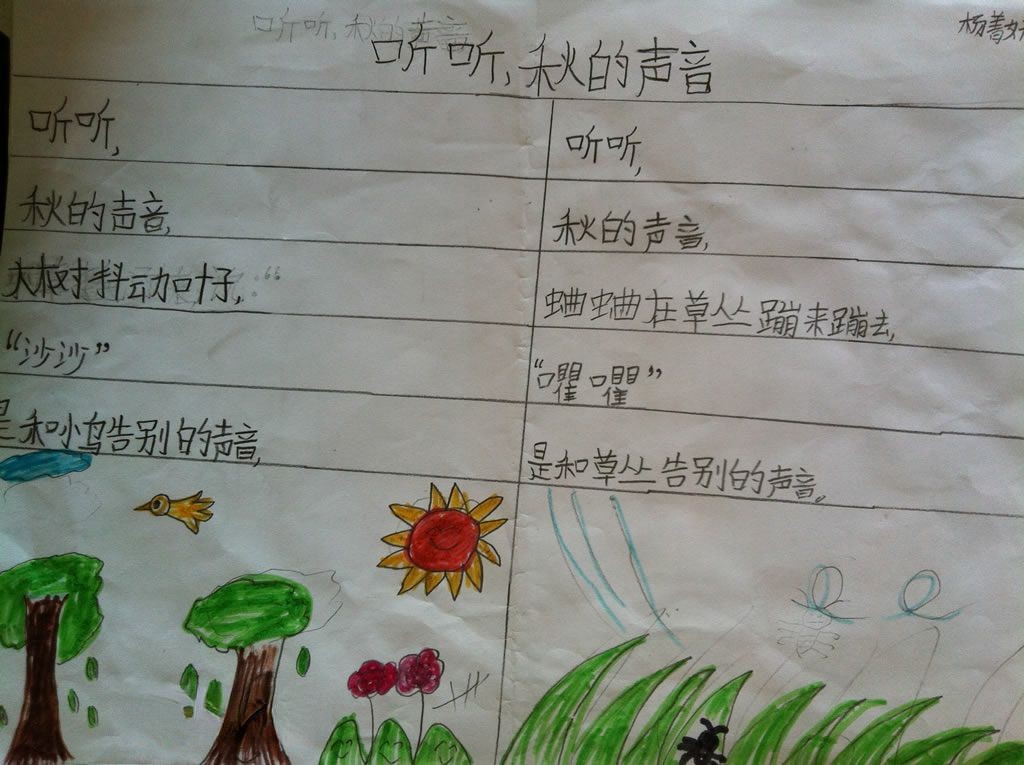 听听,秋的声音
听听,秋的声音
杨菁
听听,
秋的声音,
大树抖动叶子,:“
“沙沙”
是和小鸟告别的声音,
听听,
秋的声音,
蛐蛐在草丛蹦来蹦去,
“㘗㘗”
是和草丛告别的声音。